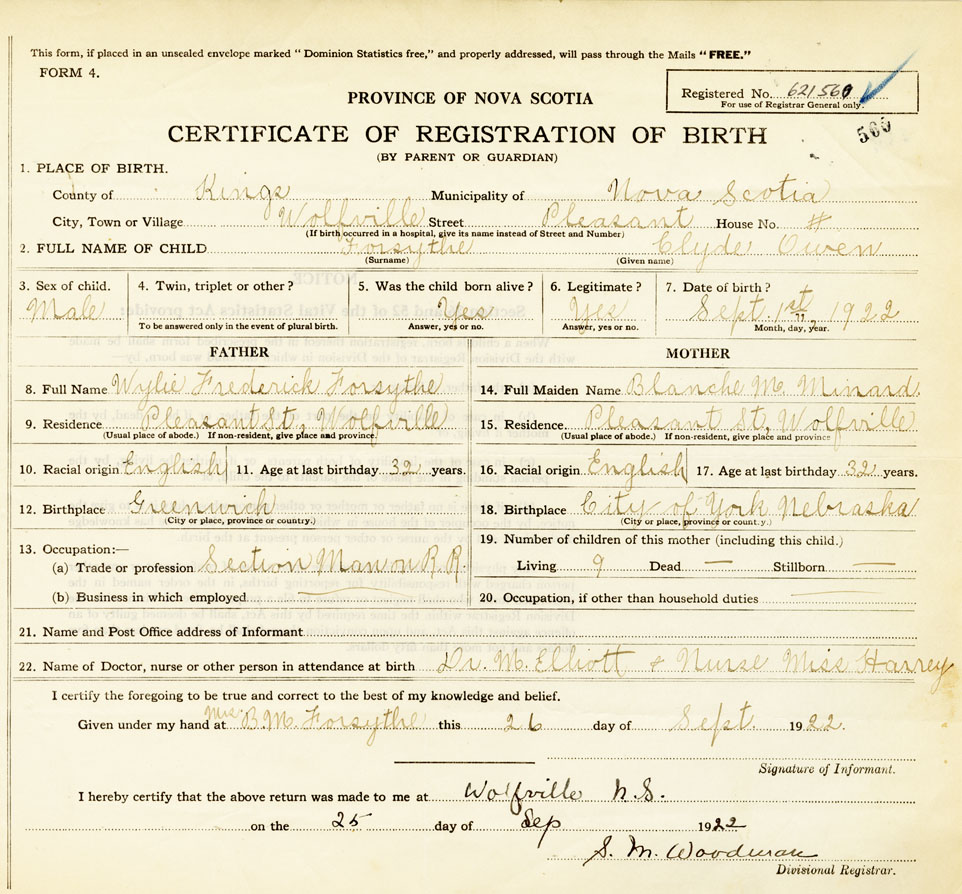 This form, if placed in an unsealed envelope marked "Dominion Statistics free," and properly addressed, will pass through the Mails "FREE."
FORM 4.
Registered No. 621560
For use of Registrar General only.
560
PROVINCE OF NOVA SCOTIA
CERTIFICATE OF REGISTRATION OF BIRTH
(BY PARENT OR GUARDIAN)
1. PLACE OF BIRTH.
County of Kings Municipality of Nova Scotia
City, Town or Village Wolfville Street Pleasant House No. #
(If birth occurred in a hospital, give its name instead of Street and Number)
2. FULL NAME OF CHILD Forsythe Clyde Owen
(Surname) (Given name)
3. Sex of child. 4. Twin, triplet or other? 5. Was the child born alive? 6. Legitimate? 7. Date of birth?
Male Yes Yes Sept. 1st, 1922
To be answered only in the event of plural birth. Answer, yes or no. Answer, yes or no. Month, day, year.
FATHER MOTHER
8. Full Name Wylie Frederick Forsythe 14. Full Maiden Name Blanche M. Minard.
9. Residence Pleasant St, Wolfville 15. Residence. Pleasant St, Wolfville
(Usual place of abode.) If non-resident, give place and province. (Usual place of abode.) If non-resident, give place and province
10. Racial origin English 11. Age at last birthday 32 years. 16. Racial origin English 17. Age at last birthday 32 years.
12. Birthplace Greenwich 18. Birthplace City of York Nebraska
(City or place, province or country.) (City or place, province or count.y.)
13. Occupation:— 19. Number of children of this mother (including this child.)
(a) Trade or profession Section Man on R.R. Living 9 Dead — Stillborn —
(b) Business in which employed — 20. Occupation, if other than household duties —
21. Name and Post Office address of Informant
22. Name of Doctor, nurse or other person in attendance at birth Dr. M. Elliott & Nurse Miss Harvey
I certify the foregoing to be true and correct to the best of my knowledge and belief.
Given under my hand at Mrs. B.M. Forsythe this 26 day of Sept. 1922.
Signature of Informant.
I hereby certify that the above return was made to me at Wolfville N.S.
on the 25 day of Sep 1922
S. M. Woodman
Divisional Registrar.